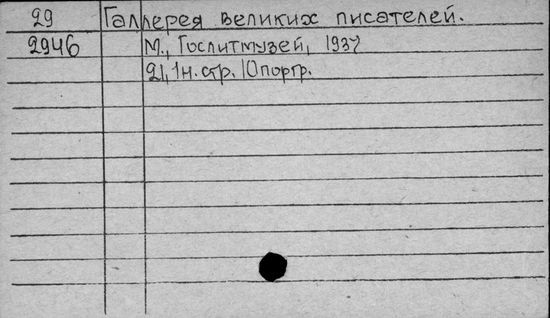 29 Галлерея великих писателей.
2946 М., Гослитмузей, 1937
21, 1н. стр. 10 портр.